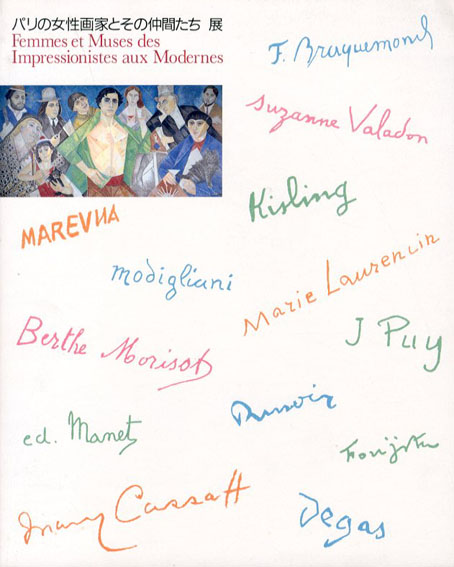 パリの女性画家とその仲間たち 展
Femmes et Muses des
Impressionistes aux Modernes
F. Bracquemond
Suzanne Valadon
Kisling
MAREVNA
Modigliani
Marie Laurencin
J Puy
Berthe Morisot
Renoir
ed. Manet
Mary Cassatt
Degas